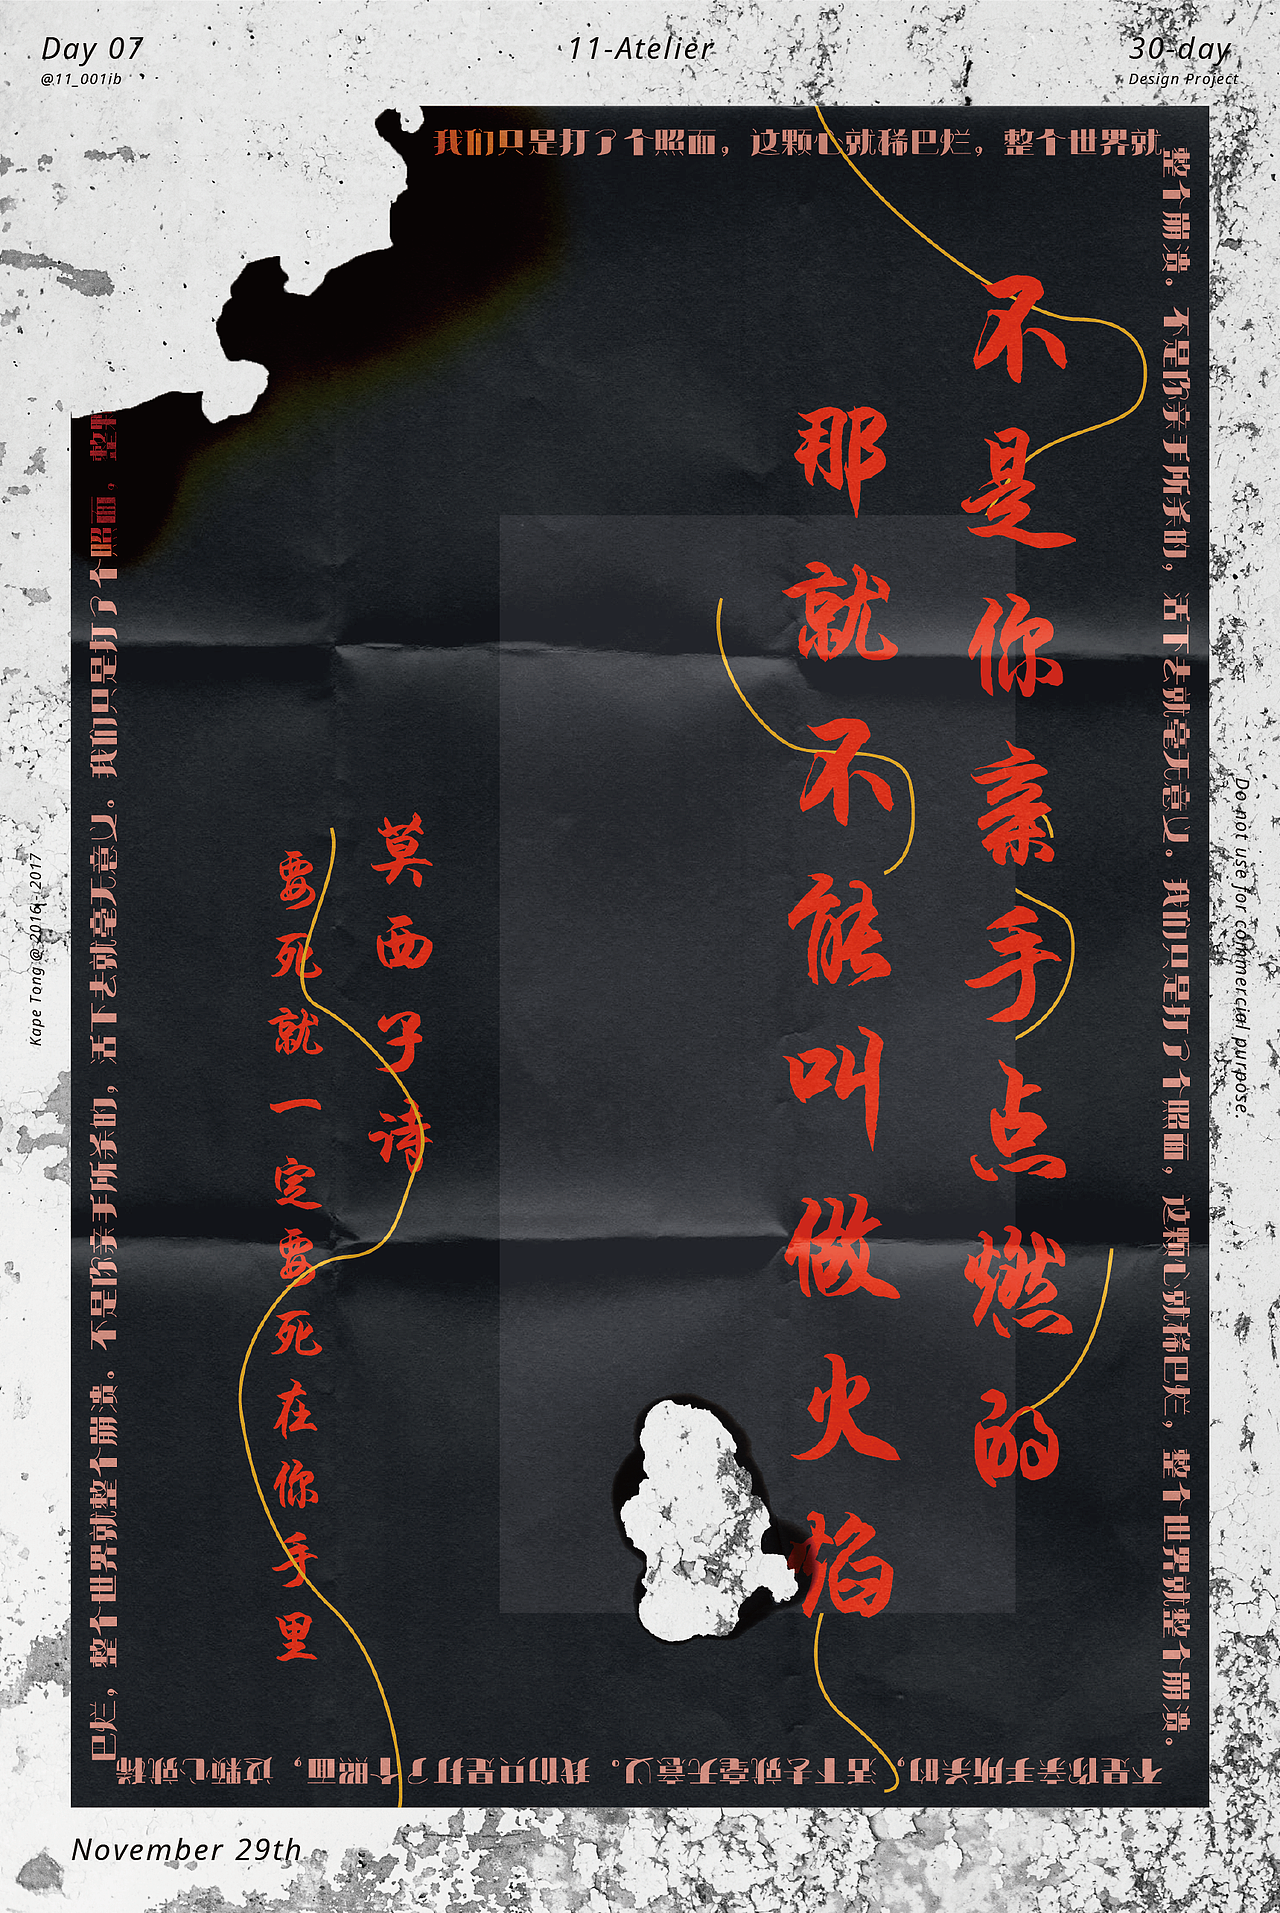 Day 07
@11_001ib
11-Atelier
30-day
Design Project
我们只是打了个照面，这颗心就稀巴烂，整个世界就
整个崩溃。不是你亲手所杀的，活下去就毫无意义。我们只是打了个照面，这颗心就稀巴烂，整个世界就整个崩溃。
不是你亲手所杀的，活下去就毫无意义。我们只是打了个照面，这颗心就稀
巴烂，整个世界就整个崩溃。不是你亲手所杀的，活下去就毫无意义。我们只是打了个照面，
不是你亲手点燃的
那就不能叫做火焰
莫西子诗
要死就一定要死在你手里
Kape Tong @ 2016 - 2017
Do not use for commercial purpose.
November 29th